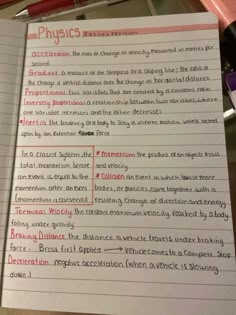 Physics Forces revision
acceleration the rate of change of velocity measured in metres per
second.
Gradient a measure of the steepness of a sloping line; the ratio of
the change in vertical distance over the change in horizontal distance
Proportional two variables that are related by a constant ratio
Inversely Proportional a relationship between two variables, where
one variable increases and the other decreases
*Inertia the tendency of a body to stay in uniform motion unless acted
upon by an external force
In a closed system, the
total momentum before
an event is equal to the
momentum after an event
(momentum is conserved)
*Momentum the product of an objects mass
and velocity
*Collision an event in which two or more
bodies, or particles, come together with a
resulting change of direction and energy
Terminal Velocity the constant maximum velocity reached by a body
falling under gravity
Breaking Distance the distance a vehicle travels under braking
force. Breaks first applied → vehicle comes to a complete stop
Deceleration negative acceleration (when a vehicle is slowing
down)